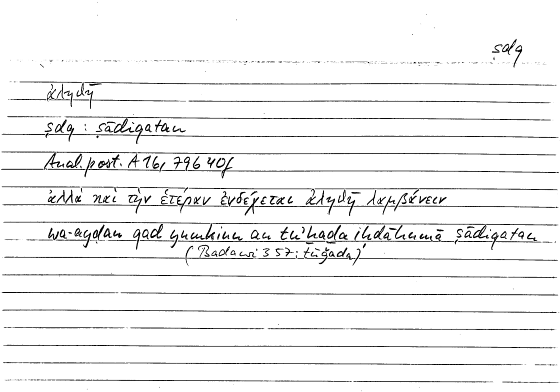 ṣdq
ἀληθῆ
ṣdq : ṣādiqatan
Anal. post. A 16, 79b 40f
ἀλλὰ καὶ τὴν ἑτέραν ἐνδέχεται ἀληθῆ λαμβάνειν
wa-ayḍan qad yumkinu an tuʾḫaḏa iḥdāhumā ṣādiqatan
(Badawī 357: tūǧada)